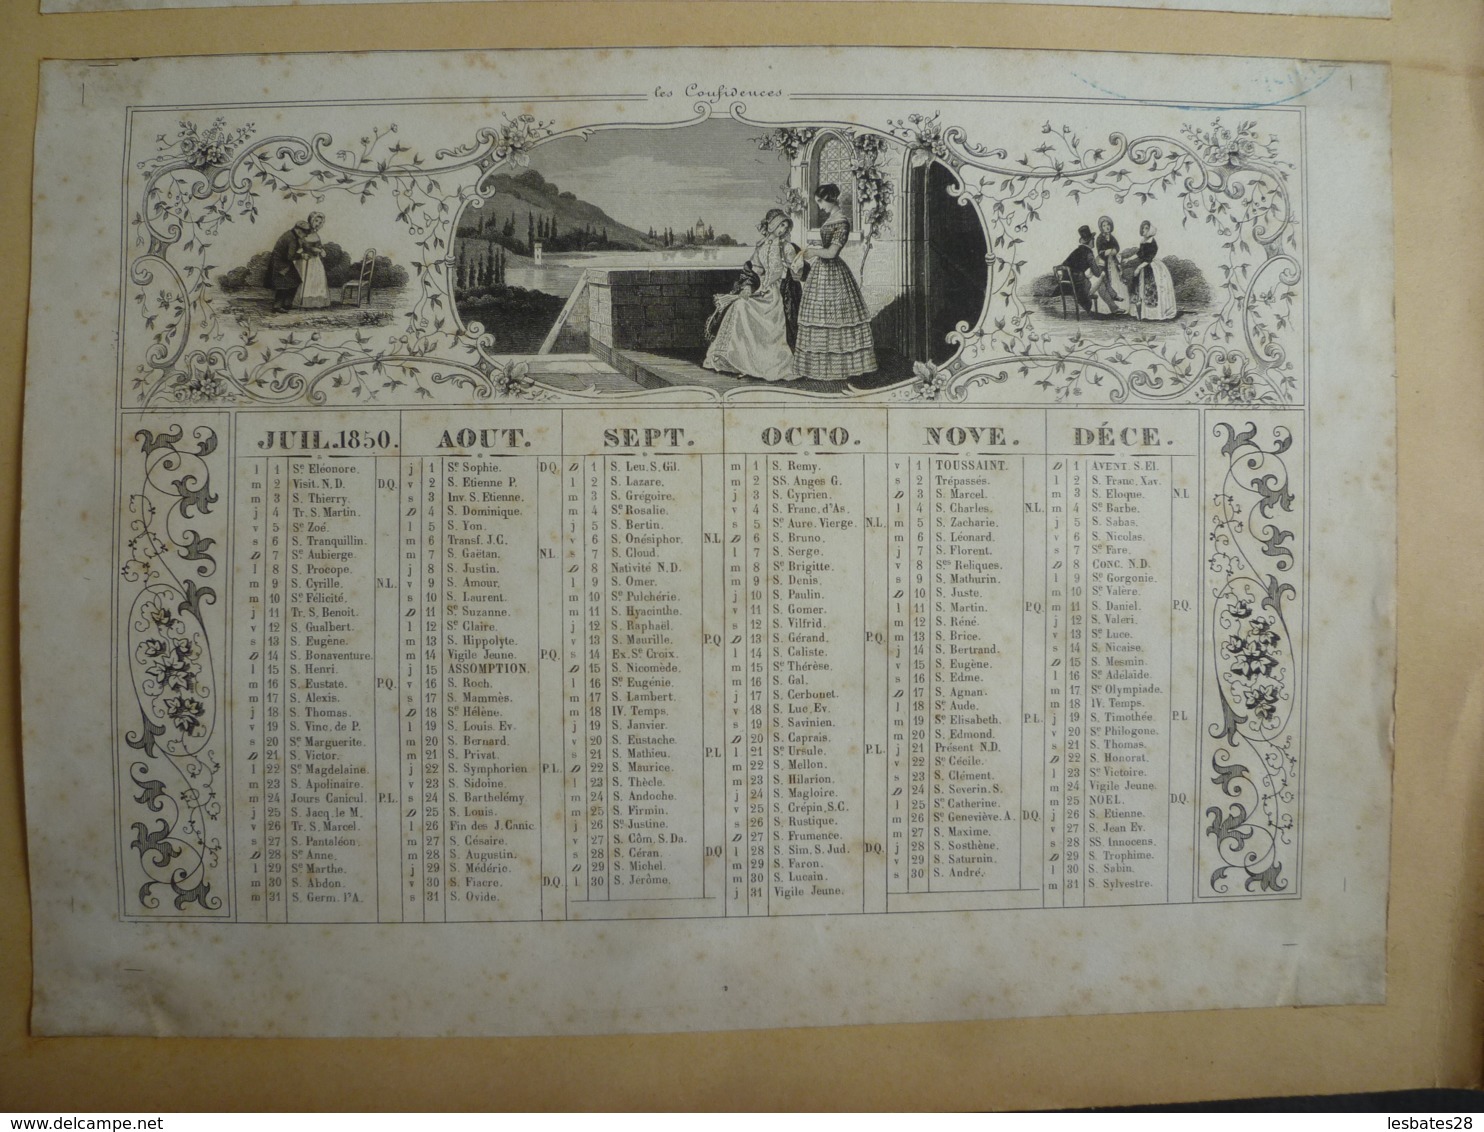 les Confidences
JUIL. 1850.
l 1 Sᵉ Eléonore.
m 2 Visit. N.D. D.Q.
m 3 S. Thierry.
j 4 Tr. S. Martin.
v 5 Sᵉ Zoé.
s 6 S. Tranquillin.
D 7 Sᵉ Aubierge.
l 8 S. Procope.
m 9 S. Cyrille. N.L.
m 10 Sᵉ Félicité.
j 11 Tr. S. Benoit.
v 12 S. Gualbert.
s 13 S. Eugène.
D 14 S. Bonaventure.
l 15 S. Henri.
m 16 S. Eustate. P.Q.
m 17 S. Alexis.
j 18 S. Thomas.
v 19 S. Vinc. de P.
s 20 Sᵉ Marguerite.
D 21 S. Victor.
l 22 Sᵉ Magdelaine.
m 23 S. Apolinaire.
m 24 Jours Canicul. P.L.
j 25 S. Jacq. le M.
v 26 Tr. S. Marcel.
s 27 S. Pantaléon.
D 28 Sᵉ Anne.
l 29 Sᵉ Marthe.
m 30 S. Abdon.
m 31 S. Germ. l'A.
AOUT.
j 1 Sᵉ Sophie. D.Q.
v 2 S. Etienne P.
s 3 Inv. S. Etienne.
D 4 S. Dominique.
l 5 S. Yon.
m 6 Transf. J.C.
m 7 S. Gaëtan. N.L.
j 8 S. Justin.
v 9 S. Amour.
s 10 S. Laurent.
D 11 Sᵉ Suzanne.
l 12 Sᵉ Claire.
m 13 S. Hippolyte.
m 14 Vigile Jeune. P.Q.
j 15 ASSOMPTION.
v 16 S. Roch.
s 17 S. Mammès.
D 18 Sᵉ Hélène.
l 19 S. Louis. Ev.
m 20 S. Bernard.
m 21 S. Privat.
j 22 S. Symphorien. P.L.
v 23 S. Sidoine.
s 24 S. Barthelémy.
D 25 S. Louis.
l 26 Fin des J. Canic.
m 27 S. Césaire.
m 28 S. Augustin.
j 29 S. Médéric.
v 30 S. Fiacre. D.Q.
s 31 S. Ovide.
SEPT.
D 1 S. Leu. S. Gil.
l 2 S. Lazare.
m 3 S. Grégoire.
m 4 Sᵉ Rosalie.
j 5 S. Bertin.
v 6 S. Onésiphor. N.L
s 7 S. Cloud.
D 8 Nativité N.D.
l 9 S. Omer.
m 10 Sᵉ Pulchérie.
m 11 S. Hyacinthe.
j 12 S. Raphaël.
v 13 S. Maurille. P.Q
s 14 Ex. Sᵉ Croix.
D 15 S. Nicomède.
l 16 Sᵉ Eugénie.
m 17 S. Lambert.
m 18 IV. Temps.
j 19 S. Janvier.
v 20 S. Eustache.
s 21 S. Mathieu. P.L
D 22 S. Maurice.
l 23 S. Thècle.
m 24 S. Andoche.
m 25 S. Firmin.
j 26 Sᵉ Justine.
v 27 S. Côm. S. Da.
s 28 S. Céran. D.Q
D 29 S. Michel.
l 30 S. Jérôme.
OCTO.
m 1 S. Remy.
m 2 SS. Anges G.
j 3 S. Cyprien.
v 4 S. Franc. d'As.
s 5 Sᵉ Aure. Vierge. N.L.
D 6 S. Bruno.
l 7 S. Serge.
m 8 Sᵉ Brigitte.
m 9 S. Denis.
j 10 S. Paulin.
v 11 S. Gomer.
s 12 S. Vilfrid.
D 13 S. Gérand. P.Q.
l 14 S. Caliste.
m 15 Sᵉ Thérèse.
m 16 S. Gal.
j 17 S. Cerbonet.
v 18 S. Luc. Ev.
s 19 S. Savinien.
D 20 S. Caprais.
l 21 Sᵉ Ursule. P.L.
m 22 S. Mellon.
m 23 S. Hilarion.
j 24 S. Magloire.
v 25 S. Crépin. S.C.
s 26 S. Rustique.
D 27 S. Frumence.
l 28 S. Sim. S. Jud. D.Q.
m 29 S. Faron.
m 30 S. Lucain.
j 31 Vigile Jeune.
NOVE.
v 1 TOUSSAINT.
s 2 Trépassés.
D 3 S. Marcel.
l 4 S. Charles. N.L.
m 5 S. Zacharie.
m 6 S. Léonard.
j 7 S. Florent.
v 8 Sᵉˢ Reliques.
s 9 S. Mathurin.
D 10 S. Juste.
l 11 S. Martin. P.Q.
m 12 S. Réné.
m 13 S. Brice.
j 14 S. Bertrand.
v 15 S. Eugène.
s 16 S. Edme.
D 17 S. Agnan.
l 18 Sᵉ Aude.
m 19 Sᵉ Elisabeth. P.L.
m 20 S. Edmond.
j 21 Présent N.D.
v 22 Sᵉ Cécile.
s 23 S. Clément.
D 24 S. Severin. S.
l 25 Sᵉ Catherine.
m 26 Sᵉ Geneviève. A. D.Q.
m 27 S. Maxime.
j 28 S. Sosthène.
v 29 S. Saturnin.
s 30 S. André.
DÉCE.
D 1 AVENT. S. El.
l 2 S. Franc. Xav.
m 3 S. Eloque. N.L
m 4 Sᵉ Barbe.
j 5 S. Sabas.
v 6 S. Nicolas.
s 7 Sᵉ Fare.
D 8 CONC. N.D.
l 9 Sᵉ Gorgonie.
m 10 Sᵉ Valère.
m 11 S. Daniel. P.Q.
j 12 S. Valeri.
v 13 Sᵉ Luce.
s 14 S. Nicaise.
D 15 S. Mesmin.
l 16 Sᵉ Adélaïde.
m 17 Sᵉ Olympiade.
m 18 IV. Temps.
j 19 S. Timothée. P.L
v 20 Sᵉ Philogone.
s 21 S. Thomas.
D 22 S. Honorat.
l 23 Sᵉ Victoire.
m 24 Vigile Jeune.
m 25 NOËL. D.Q.
j 26 S. Etienne.
v 27 S. Jean Ev.
s 28 SS. Innocens.
D 29 S. Trophime.
l 30 S. Sabin.
m 31 S. Sylvestre.
delcampe.net
lesbates28